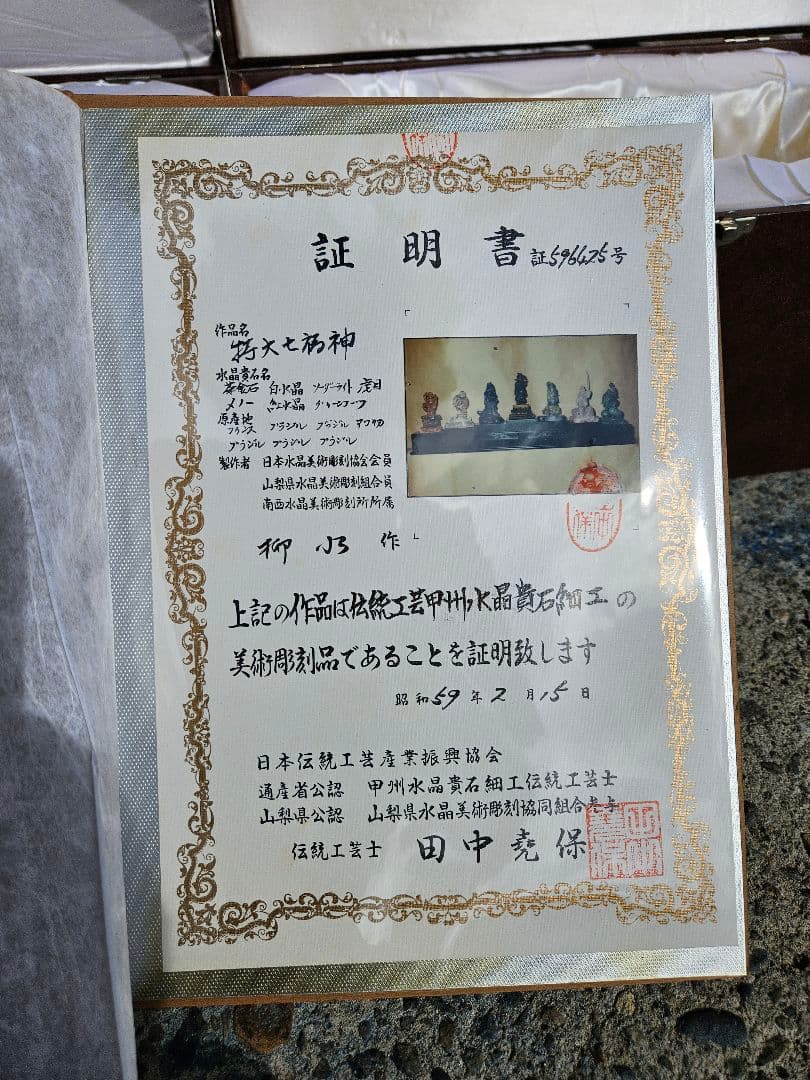 証明書 証596425号
作品名
特大七福神
水晶貴石名
茶金石 白水晶 ソーダーライト 虎目
メノー 紅水晶
原産地
フランス ブラジル ブラジル アフリカ
ブラジル ブラジル ブラジル
製作者 日本水晶美術彫刻協会会員
山梨県水晶美術彫刻組合員
南西水晶美術彫刻所所属
柳水作
上記の作品は伝統工芸甲州水晶貴石細工の
美術彫刻品であることを証明致します
昭和59年2月15日
日本伝統工芸産業振興協会
通産省公認 甲州水晶貴石細工伝統工芸士
山梨県公認 山梨県水晶美術彫刻協同組合
伝統工芸士 田中尭保